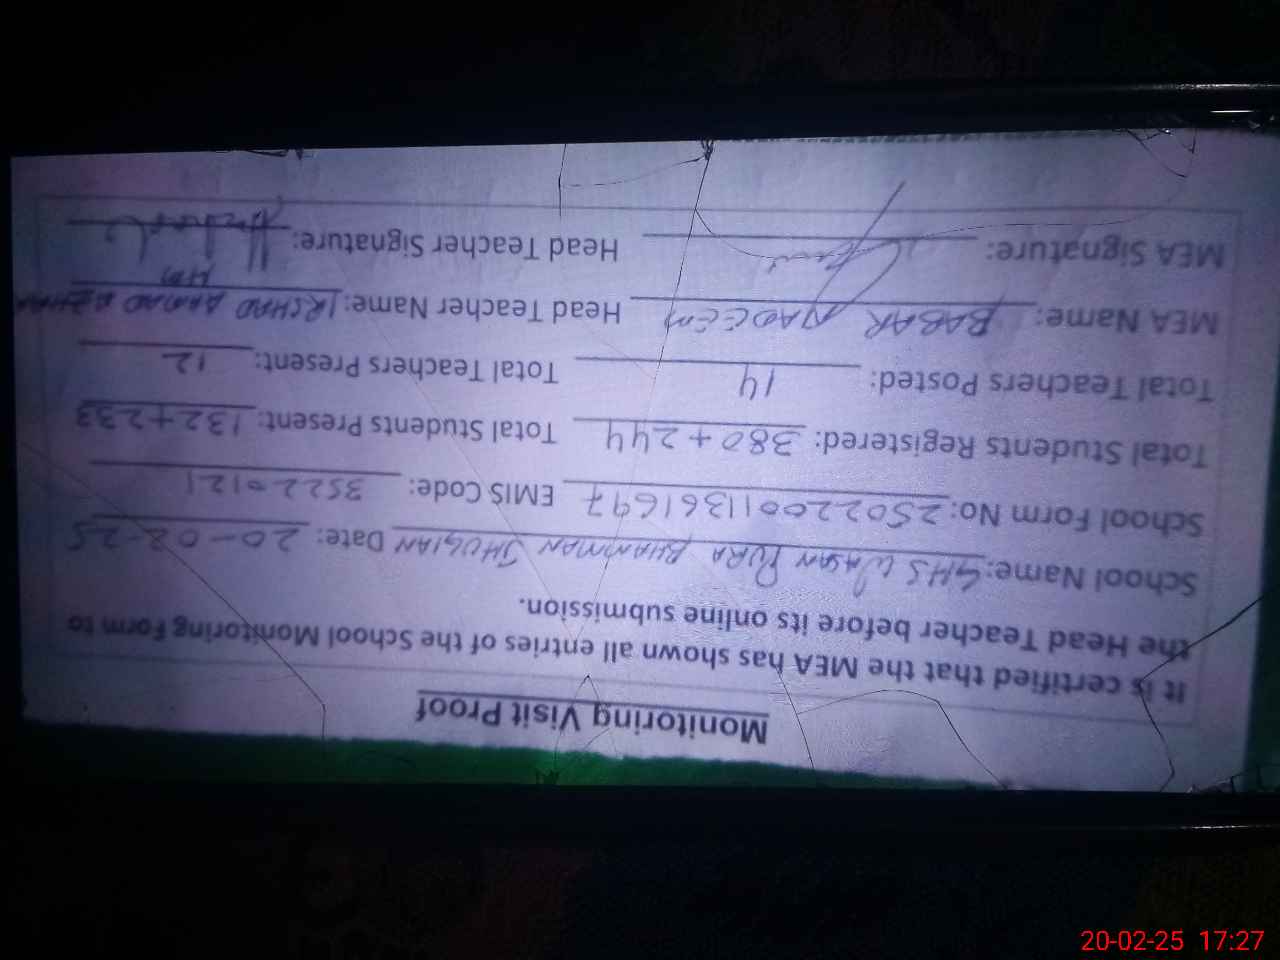 Monitoring Visit Proof
It is certified that the MEA has shown all entries of the School Monitoring Form to
the Head Teacher before its online submission.
School Name: GHS WASAN PURA BHAMMAN JHUGIAN Date: 20-02-25
School Form No: 25022001361697 EMIS Code: 35220121
Total Students Registered: 380+244 Total Students Present: 132+233
Total Teachers Posted: 14 Total Teachers Present: 12
MEA Name: BABAR NADEEM Head Teacher Name: IRSHAD AHMAD
HM
MEA Signature: Head Teacher Signature:
20-02-25 17:27